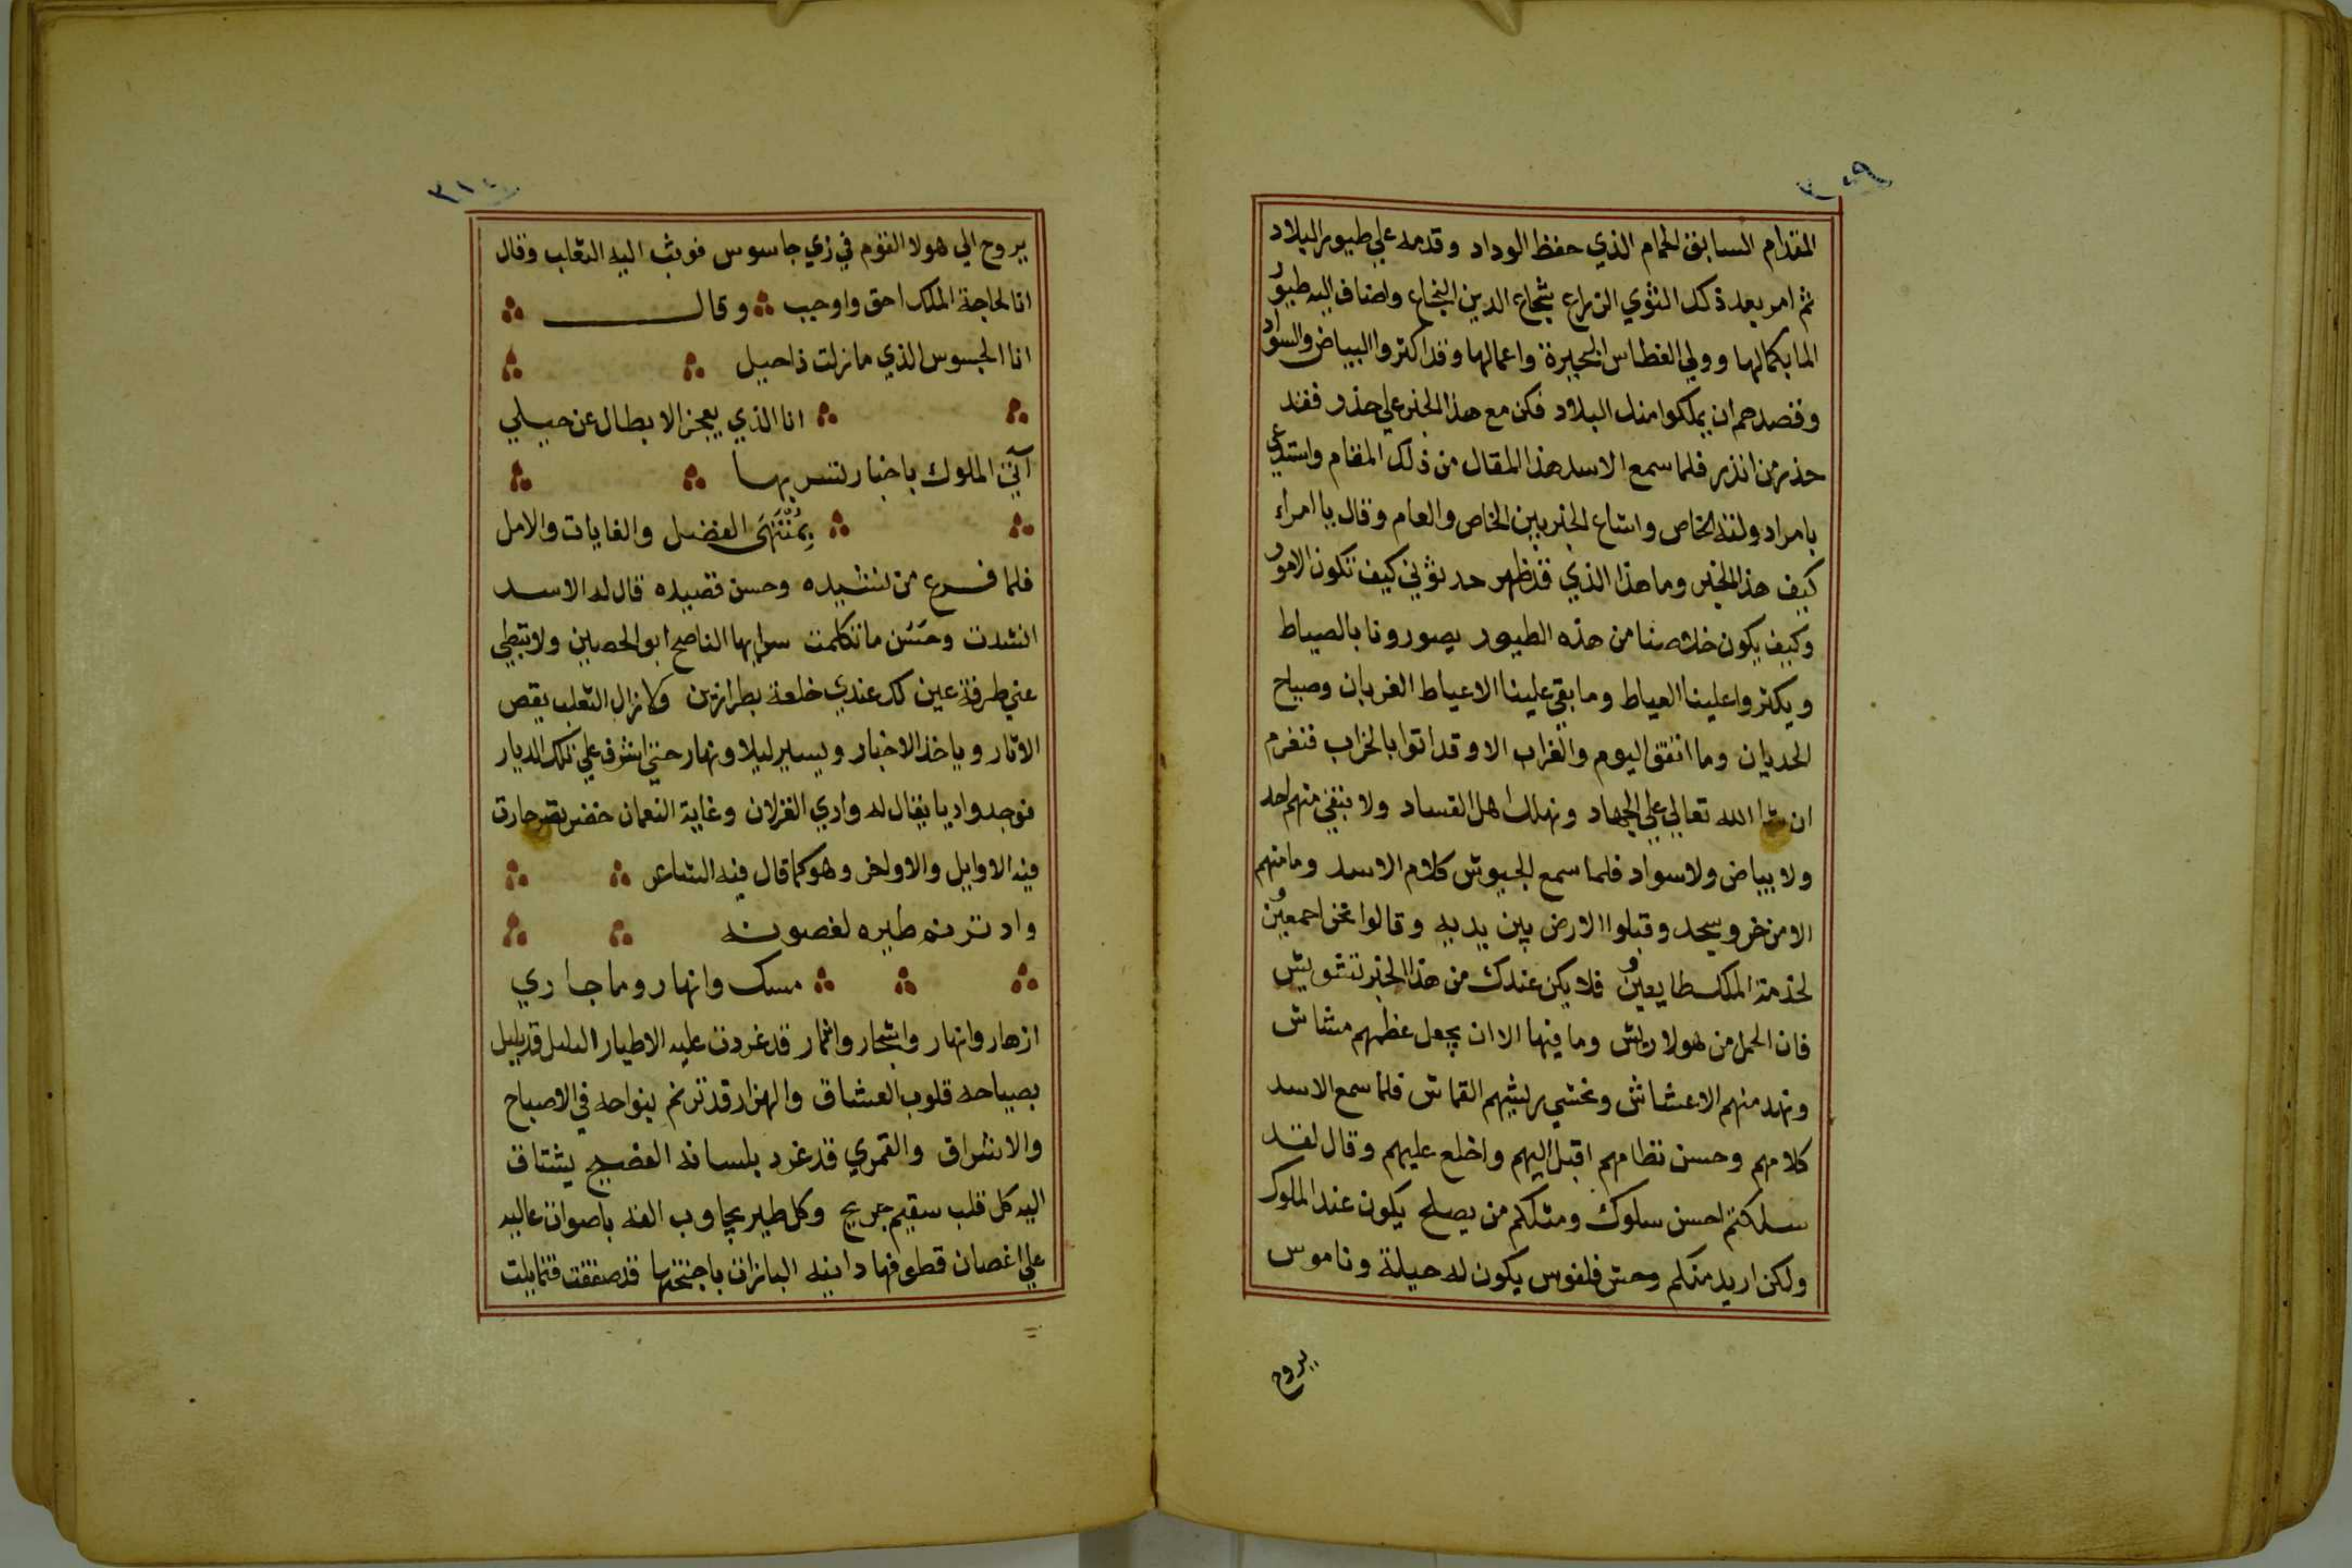 ٣٠٩
المقدام السابق الحمام الذي حفظ الوداد وقدمه علي طيور البلاد
ثم امر بعد ذكك النوي الزراع شجاع الدين البخاع واضاف اليه طيور
الما بكمالها وولي الغطاس البحيرة واعمالها وقد اكثروا البياض والسواد
وقصدهم ان يملكوا منك البلاد فكن مع هذا الخبر علي حذر فقد
حذر من انذر فلما سمع الاسد هذا المقال من ذلك المقام واستدعي
بامراء دولته الخاص واشاع الخبر بين الخاص والعام وقال يا امراء
كيف هذا الخبر وما هذا الذي قد ظهر حدثوني كيف تكون الامور
وكيف يكون خلاصنا من هذه الطيور يصورونا بالصياط
ويكثروا علينا العياط وما بقي علينا الا عياط الغربان وصياح
الحديان وما اتفق اليوم والغراب الا وقد اتوا بالخراب فنغرم
ان شا الله تعالي علي الجهاد ونهلك اهل الفساد ولا يبقي منهم احد
ولا بياض ولا سواد فلما سمع الجيوش كلام الاسد وما منهم
الا من خر وسجد وقبلوا الارض بين يديه وقالوا نحن اجمعين
لخدمة الملك طايعين فلا يكن عندك من هذا الخبر تشويش
فان الحمل من هولا ريش وما فيها الا ان يجعل عظمهم مشاش
ونهد منهم الاعشاش ونحشي بريشهم القماش فلما سمع الاسد
كلامهم وحسن نظامهم اقبل اليهم واخلع عليهم وقال لقد
سلكتم احسن سلوك ومثلكم من يصلح يكون عند الملوك
ولكن اريد منكم وحش فلفوس يكون له حيلة وناموس
يروح
٣١٠
يروح الي هولا القوم في زي جاسوس فوثب اليه الثعلب وقال
انا لحاجة الملك احق واوجب وقال
انا الجسوس الذي ما زلت ذا حيل
انا الذي يعجز الابطال عن حيلي
آتي الملوك باخبار تسر بها
بِمُنْتَهَى الفضل والغايات والامل
فلما فرع من نشيده وحسن قصيده قال له الاسد
انشدت وحَسَن ما تكلمت سر ايها الناصح ابو الحصين ولا تبطي
عني طرفة عين لك عندي خلعة بطرازين ولا زال الثعلب يقص
الاثار وياخذ الاخبار ويسير ليلا ونهار حتي اشرف علي تلك الديار
فوجد واديا يقال له وادي الغزلان وغاية النعمان خضر نضر حارت
فيه الاوايل والاواخر وهو كما قال فيه الشاعر
واد ترنم طيره لغصونه
مسك وانهار وما جاري
ازهار وانهار واشجار واثمار قد غردت عليه الاطيار البلبل قد بلبل
بصياحه قلوب العشاق والهزار قد ترنم بنواحه في الاصباح
والاشراق والقمري قد غرد بلسانه الفصيح يشتاق
اليه كل قلب سقيم جريح وكل طير يجاوب الفه باصوات عاليه
علي اغصان قطوفها دانيه البازات باجنحتها قد صفقت فتمايلت